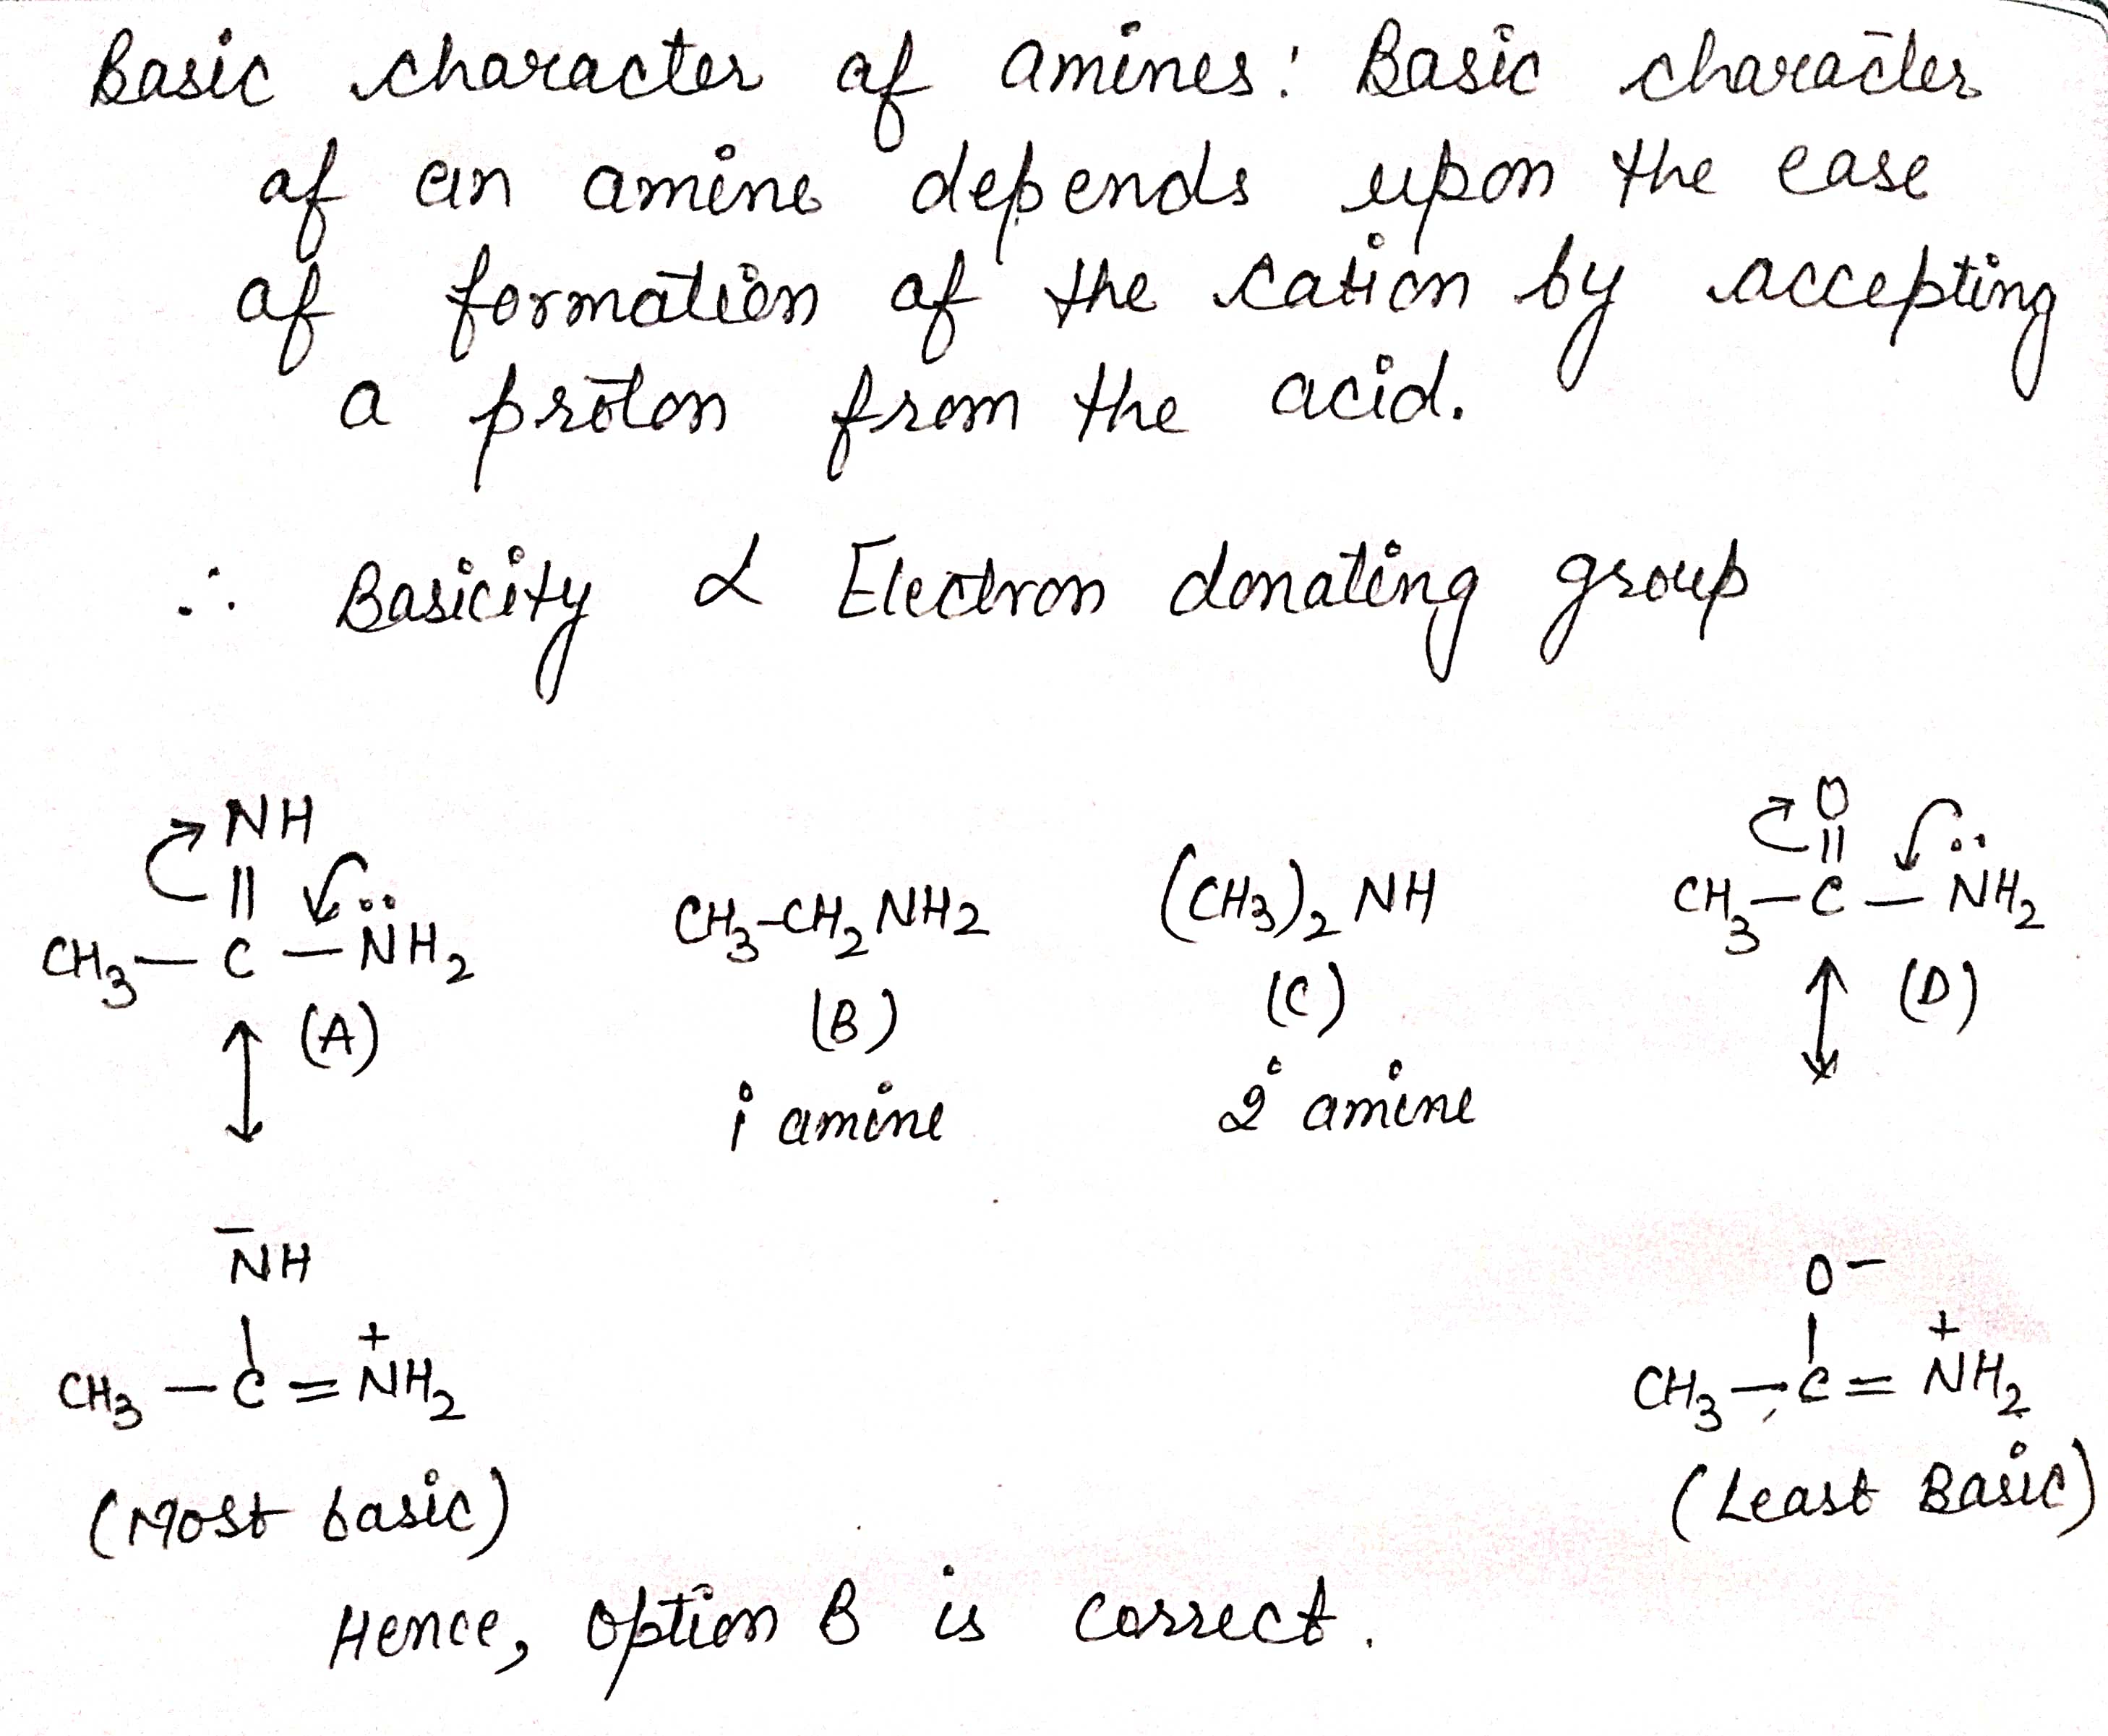 Basic character of amines: Basic character
of an amine depends upon the ease
of formation of the cation by accepting
a proton from the acid.
∴ Basicity α Electron donating group
NH
||
CH₃ — C — N̈H₂
(A)
CH₃-CH₂NH2
(B)
1° amine
(CH₃)₂ NH
(C)
2° amine
O
||
CH₃ — C — N̈H₂
(D)
N̄H
|
CH₃ — C = N⁺H₂
(Most basic)
O⁻
|
CH₃ — C = N⁺H₂
(Least Basic)
Hence, option B is correct.